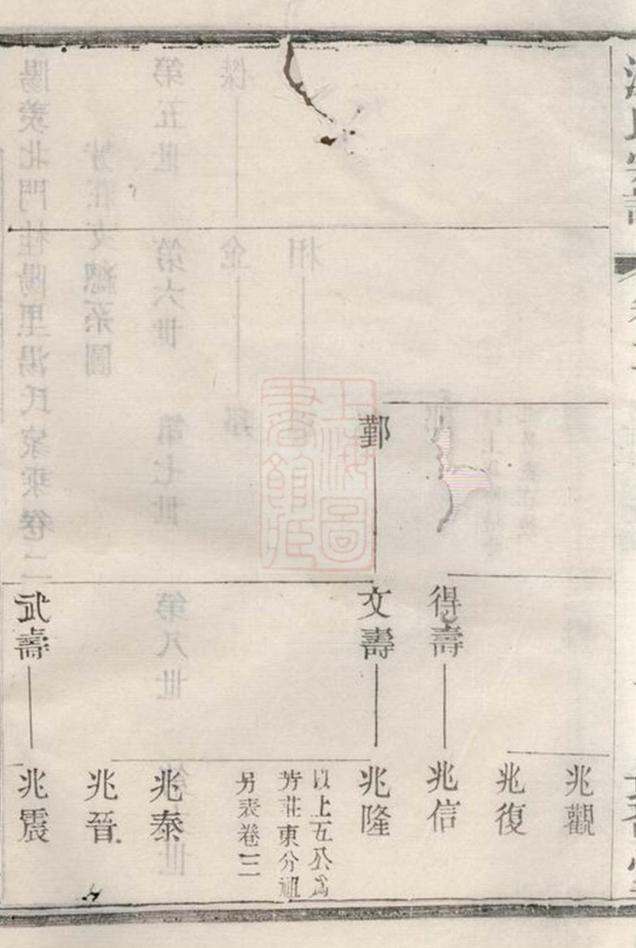 湯氏宗譜
鄞
得壽
文壽
武壽
兆觀
兆復
兆信
兆隆
以上五公為
芳莊東分祖
另表卷三
兆泰
兆晉
兆震
上海圖書館藏
第五世
第六世
第七世
第八世
陽羨北門桂陽里湯氏家乘卷二